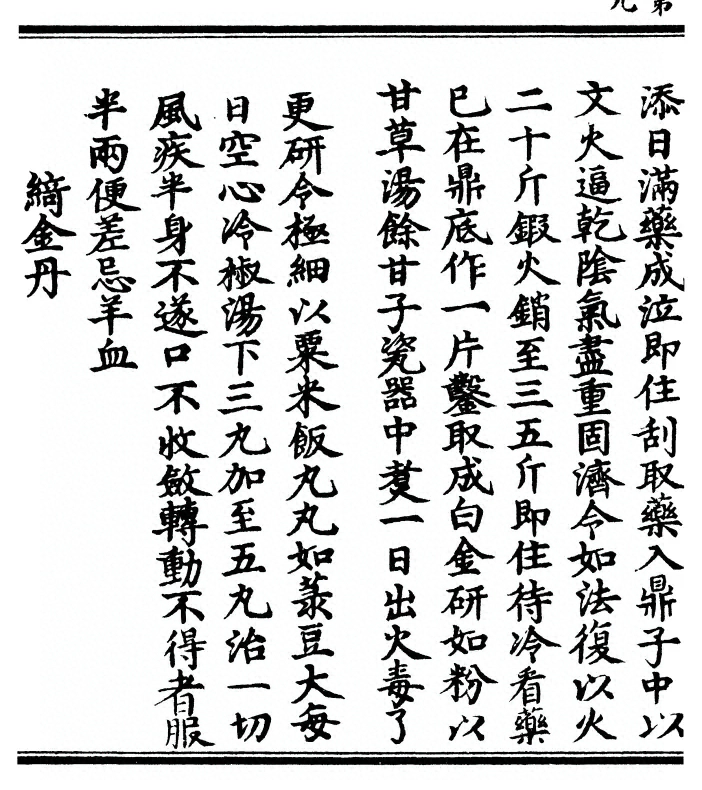 第
九
添日滿藥成泣即住刮取藥入鼎子中以
文火逼乾陰氣盡重固濟令如法復以火
二十斤鍜火銷至三五斤即住待冷看藥
已在鼎底作一片鑿取成白金研如粉以
甘草湯餘甘子瓷器中煑一日出火毒了
更研令極細以粟米飯丸丸如菉豆大每
日空心冷椒湯下三丸加至五丸治一切
風疾半身不遂口不收斂轉動不得者服
半兩便差忌羊血
綺金丹